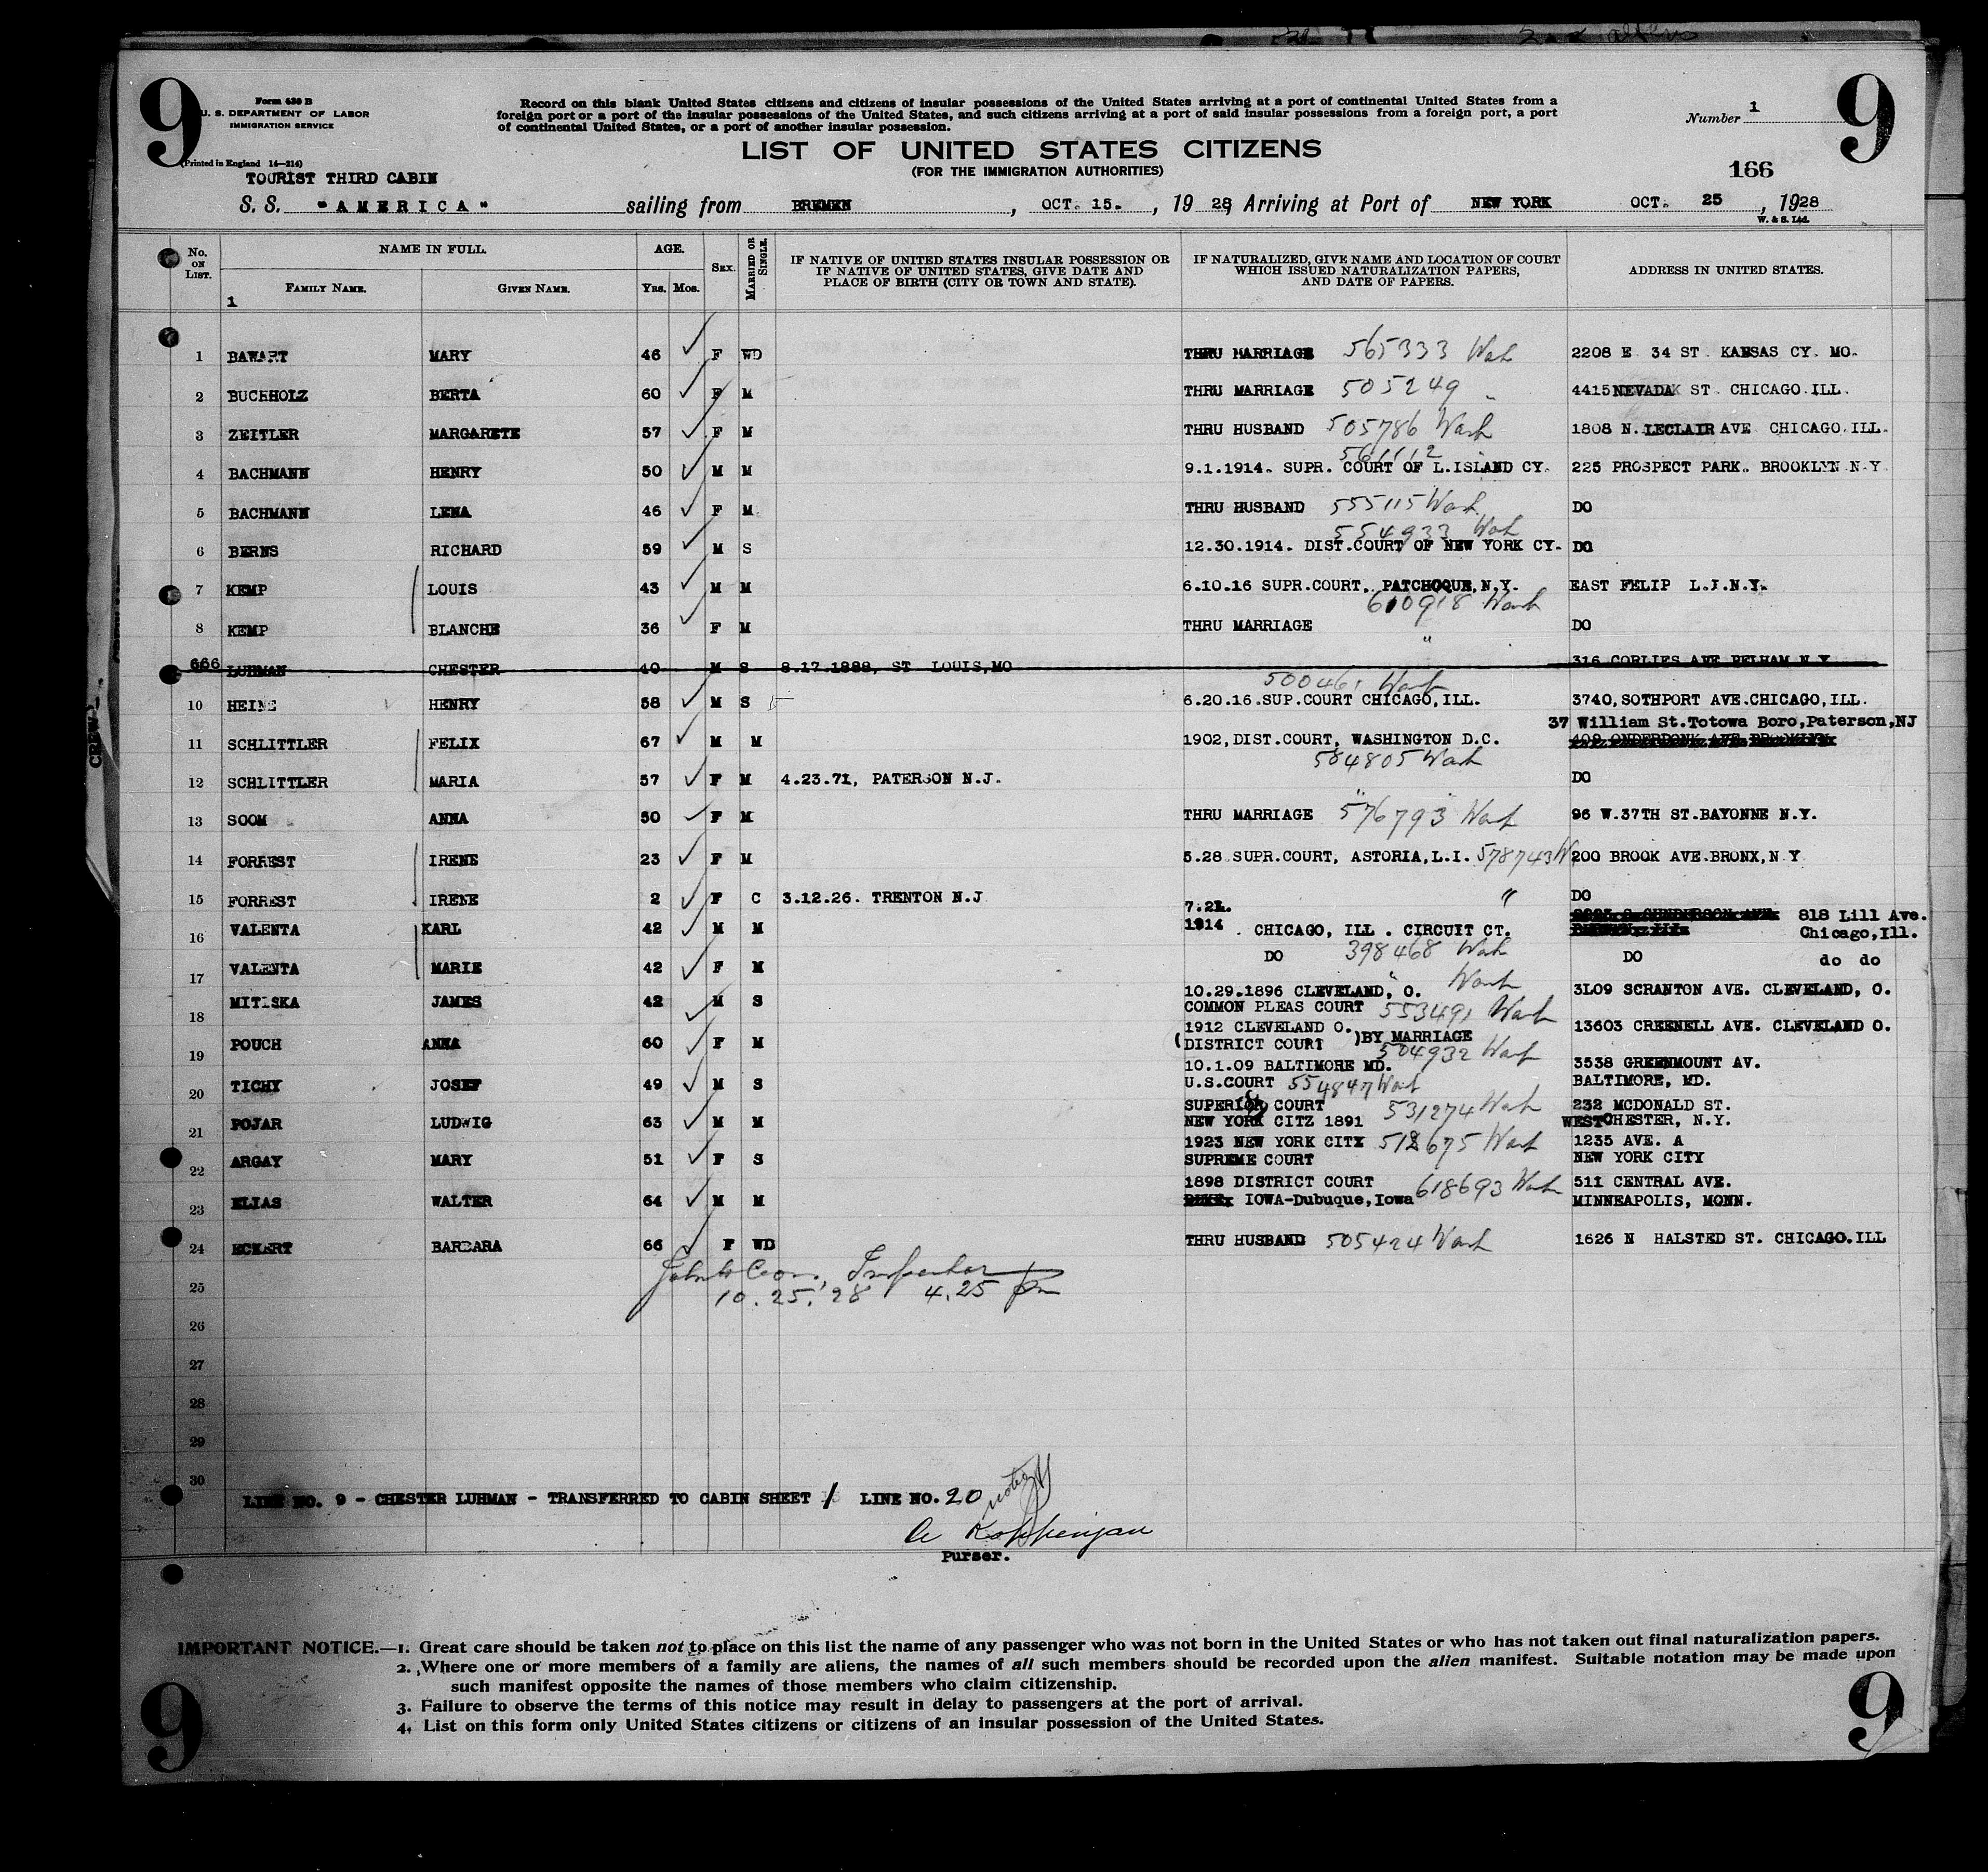 9
9
Form 630 B
U. S. DEPARTMENT OF LABOR
IMMIGRATION SERVICE
(Printed in England 14—214)
Record on this blank United States citizens and citizens of insular possessions of the United States arriving at a port of continental United States from a
foreign port or a port of the insular possessions of the United States, and such citizens arriving at a port of said insular possessions from a foreign port, a port
of continental United States, or a port of another insular possession.
Number 1
LIST OF UNITED STATES CITIZENS
(FOR THE IMMIGRATION AUTHORITIES)
166
TOURIST THIRD CABIN
S. S. "AMERICA" sailing from BREMEN, OCT. 15., 1928, Arriving at Port of NEW YORK OCT. 25, 1928
W. & S. Ltd.
No. ON LIST. NAME IN FULL. AGE. SEX. MARRIED OR SINGLE. IF NATIVE OF UNITED STATES INSULAR POSSESSION OR IF NATIVE OF UNITED STATES, GIVE DATE AND PLACE OF BIRTH (CITY OR TOWN AND STATE). IF NATURALIZED, GIVE NAME AND LOCATION OF COURT WHICH ISSUED NATURALIZATION PAPERS, AND DATE OF PAPERS. ADDRESS IN UNITED STATES.
FAMILY NAME. GIVEN NAME. YRS. MOS.
1
1 BAWART MARY 46 F WD THRU MARRIAGE 565333 Wash 2208 E 34 ST KANSAS CY. MO.
2 BUCHHOLZ BERTA 60 F M THRU MARRIAGE 505249 " 4415 NEVADA ST CHICAGO.ILL.
3 ZEITLER MARGARETE 57 F M THRU HUSBAND 505786 Wash 1808 N. LECLAIR AVE CHICAGO.ILL.
561112
4 BACHMANN HENRY 50 M M 9.1.1914. SUPR. COURT OF L.ISLAND CY. 225 PROSPECT PARK. BROOKLYN N.Y
5 BACHMANN LENA 46 F M THRU HUSBAND 555115 Wash DO
554933 Wash
6 BERNS RICHARD 59 M S 12.30.1914. DIST.COURT OF NEW YORK CY. DO
7 KEMP LOUIS 43 M M 6.10.16 SUPR.COURT. PATCHOQUE, N.Y. EAST FELIP L.I.N.Y.
610918 Wash
8 KEMP BLANCHE 36 F M THRU MARRIAGE " DO
666 LUHMAN CHESTER 40 M S 8.17.1888, ST LOUIS,MO 316 CORLIES AVE PELHAM N Y
500461 Wash
10 HEINE HENRY 58 M S 6.20.16.SUP.COURT CHICAGO,ILL. 3740,SOTHPORT AVE.CHICAGO,ILL.
37 William St.Totowa Boro,Paterson,NJ
11 SCHLITTLER FELIX 67 M M 1902,DIST.COURT, WASHINGTON D.C. 408 ONDERDONK AVE BROOKLYN
564805 Wash
12 SCHLITTLER MARIA 57 F M 4.23.71, PATERSON N.J. " " DO
13 SOOM ANNA 50 F M THRU MARRIAGE 576793 Wash 96 W.37TH ST.BAYONNE N.Y.
14 FORREST IRENE 23 F M 5.28 SUPR.COURT, ASTORIA,L.I. 578743 W 200 BROOK AVE.BRONX,N Y
15 FORREST IRENE 2 F C 3.12.26. TRENTON N.J " DO
7.21.
16 VALENTA KARL 42 M M 1914 . CHICAGO, ILL . CIRCUIT CT. 818 Lill Ave.
Chicago,Ill.
17 VALENTA MARIE 42 F M DO 398468 Wash DO do do
" Wash
18 MITISKA JAMES 42 M S 10.29.1896 CLEVELAND, O. 3L09 SCRANTON AVE. CLEVELAND, O.
COMMON PLEAS COURT 553491 Wash
19 POUCH ANNA 60 F M (1912 CLEVELAND O. DISTRICT COURT )BY MARRIAGE 13603 CREENELL AVE. CLEVELAND O.
504932 Wash
20 TICHY JOSEF 49 M S 10.1.09 BALTIMORE MD. 3538 GREENMOUNT AV.
U.S.COURT 554847 Wash BALTIMORE, MD.
21 POJAR LUDWIG 63 M M SUPERIOR COURT 531274 Wash 232 MCDONALD ST.
NEW YORK CITZ 1891 WESTCHESTER, N.Y.
22 ARGAY MARY 51 F S 1923 NEW YORK CITY 512675 Wash 1235 AVE. A
SUPREME COURT NEW YORK CITY
23 ELIAS WALTER 64 M M 1898 DISTRICT COURT 618693 Wash 511 CENTRAL AVE.
IOWA-Dubuque,Iowa MINNEAPOLIS, MONN.
24 ECKERT BARBARA 66 F WD THRU HUSBAND 505424 Wash 1626 N HALSTED ST. CHICAGO.ILL
Inspector
10.25.'28 4.25 pm
25
26
27
28
29
30
LINE NO. 9 - CHESTER LUHMAN - TRANSFERRED TO CABIN SHEET 1 LINE NO. 20 noted
Purser.
IMPORTANT NOTICE.—1. Great care should be taken not to place on this list the name of any passenger who was not born in the United States or who has not taken out final naturalization papers.
2. Where one or more members of a family are aliens, the names of all such members should be recorded upon the alien manifest. Suitable notation may be made upon
such manifest opposite the names of those members who claim citizenship.
3. Failure to observe the terms of this notice may result in delay to passengers at the port of arrival.
4. List on this form only United States citizens or citizens of an insular possession of the United States.
9
9
CREW